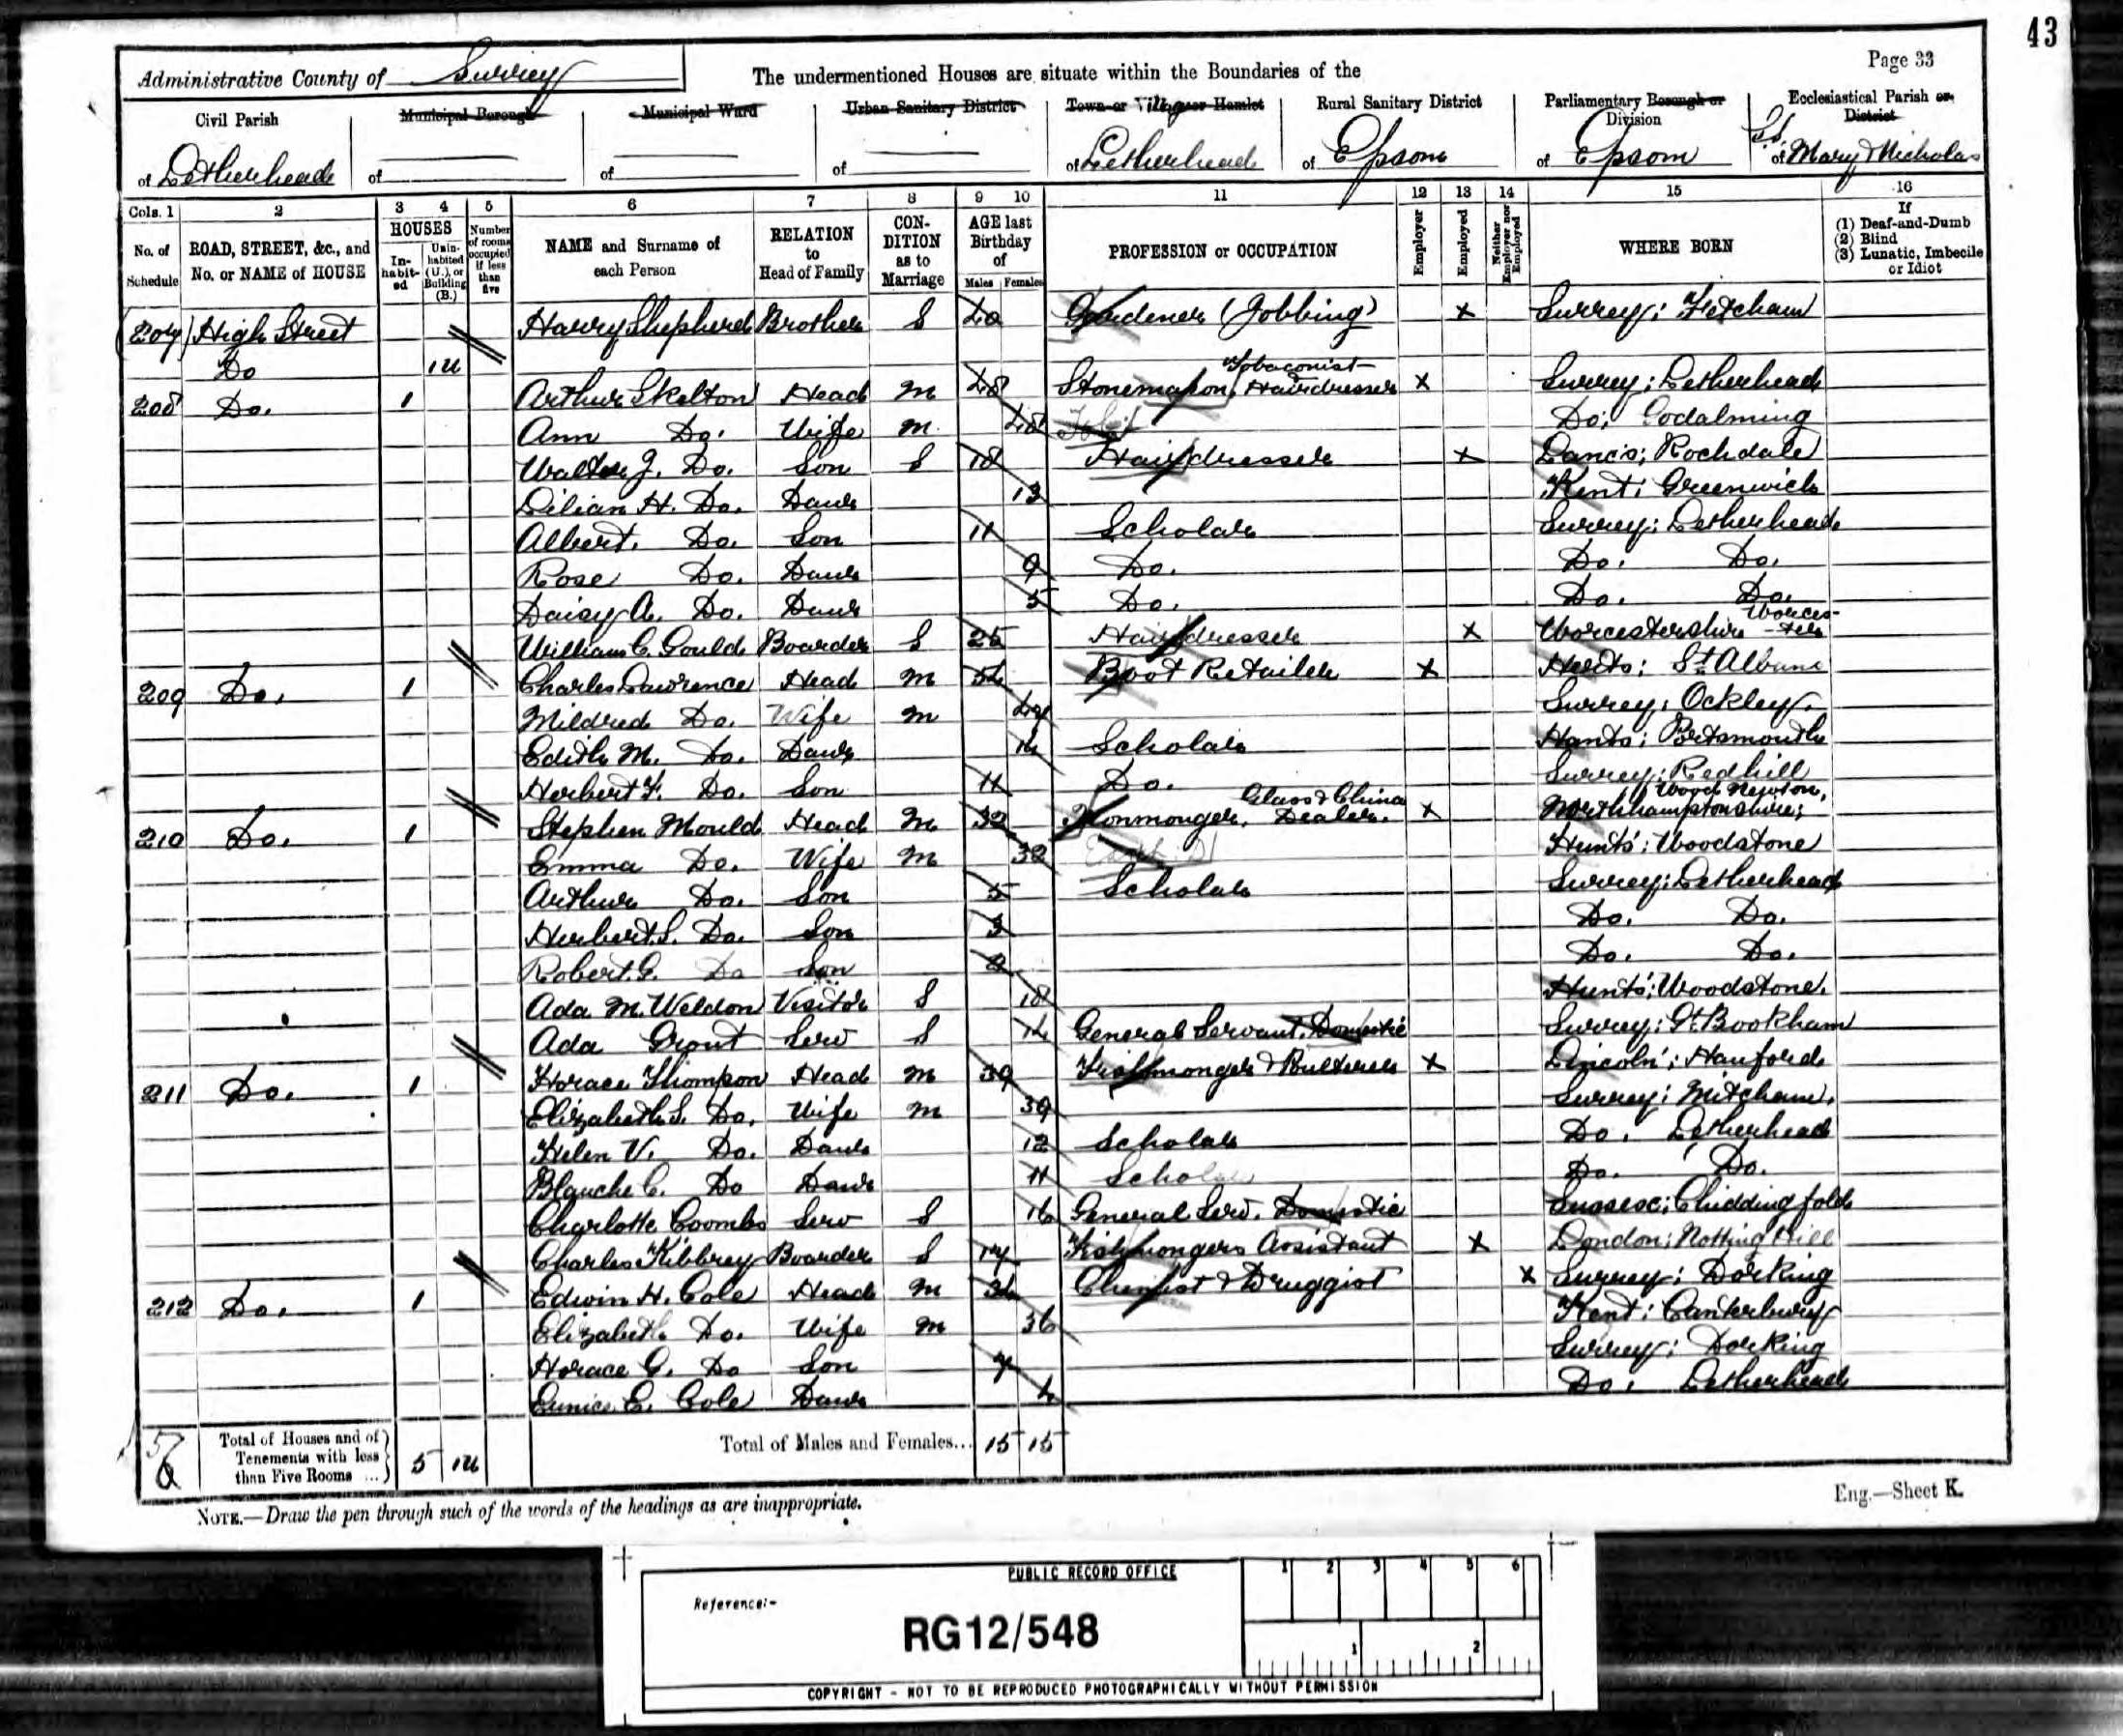 43
Administrative County of Surrey The undermentioned Houses are situate within the Boundaries of the Page 33
Civil Parish Municipal Borough Municipal Ward Urban Sanitary District Town or Village or Hamlet Rural Sanitary District Parliamentary Borough or Division Ecclesiastical Parish or District
of Letherhead of of of of Letherhead of Epsom of Epsom of SS. Mary & Nicholas
Cols. 1 2 3 4 5 6 7 8 9 10 11 12 13 14 15 16
No. of Schedule ROAD, STREET, &c., and No. or NAME of HOUSE HOUSES Inhabited Uninhabited (U.), or Building (B.) Number of rooms occupied if less than five NAME and Surname of each Person RELATION to Head of Family CONDITION as to Marriage AGE last Birthday of Males Females PROFESSION or OCCUPATION Employer Employed Neither Employer nor Employed WHERE BORN If (1) Deaf-and-Dumb (2) Blind (3) Lunatic, Imbecile or Idiot
(207) High Street Harry Shepherd Brother S 20 Gardener (Jobbing) x Surrey; Fetcham
Do 1U
208 Do. 1 Arthur Skelton Head M 48 Stonemason, Tobaconist Hairdresser x Surrey; Letherhead
Ann Do. Wife M. 48 Do; Godalming
Walter J. Do. Son S 18 Hairdresser x Lancs; Rochdale
Lilian H. Do. Daur 13 Kent; Greenwich
Albert. Do. Son 11 Scholar Surrey; Letherhead
Rose Do. Daur 9 Do. Do. Do.
Daisy A. Do. Daur 5 Do. Do. Do.
William C. Gould Boarder S 25 Hairdresser x Worcestershire Worces-ter
209 Do. 1 Charles Lawrence Head M 52 Boot Retailer x Herts; St Albans
Mildred Do. Wife M 47 Surrey; Ockley
Edith M. Do. Daur 12 Scholar Hants; Portsmouth
Herbert F. Do. Son 11 Do. Surrey; Redhill
210 Do. 1 Stephen Mould Head M 32 Ironmonger, Glass & China Dealer. x Northhamptonshire; Wood Newton,
Emma Do. Wife M 32 Hunts; Woodstone
Arthur Do. Son 5 Scholar Surrey; Letherhead
Herbert S. Do. Son 3 Do. Do.
Robert G. Do Son 2 Do. Do.
Ada M. Weldon Visitor S 18 Hunts; Woodstone.
Ada Grout Serv S 14 General Servant, Domestic Surrey; Gt. Bookham
211 Do. 1 Horace Thompson Head M 39 Fishmonger & Poulterer x Lincoln; Hanford
Elizabeth S. Do. Wife M 39 Surrey; Mitcham.
Helen V. Do. Daur 12 Scholar Do. Letherhead
Blanche C. Do Daur 11 Scholar Do. Do.
Charlotte Coombs Serv S 16 General Serv. Domestic Sussex; Chiddingfold
Charles Kibbrey Boarder S 17 Fishmongers Assistant x London; Notting Hill
212 Do. 1 Edwin H. Cole Head M 34 Chemist & Druggist x Surrey; Dorking
Elizabeth Do. Wife M 36 Kent; Canterbury
Horace C. Do Son 7 Surrey; Dorking
Eunice E. Cole Daur 4 Do. Letherhead
Total of Houses and of Tenements with less than Five Rooms ... 5 1U Total of Males and Females... 15 15
NOTE.—Draw the pen through such of the words of the headings as are inappropriate.
Eng.—Sheet K.
PUBLIC RECORD OFFICE
1 2 3 4 5 6
Reference:-
RG12/548
1 2
COPYRIGHT - NOT TO BE REPRODUCED PHOTOGRAPHICALLY WITHOUT PERMISSION